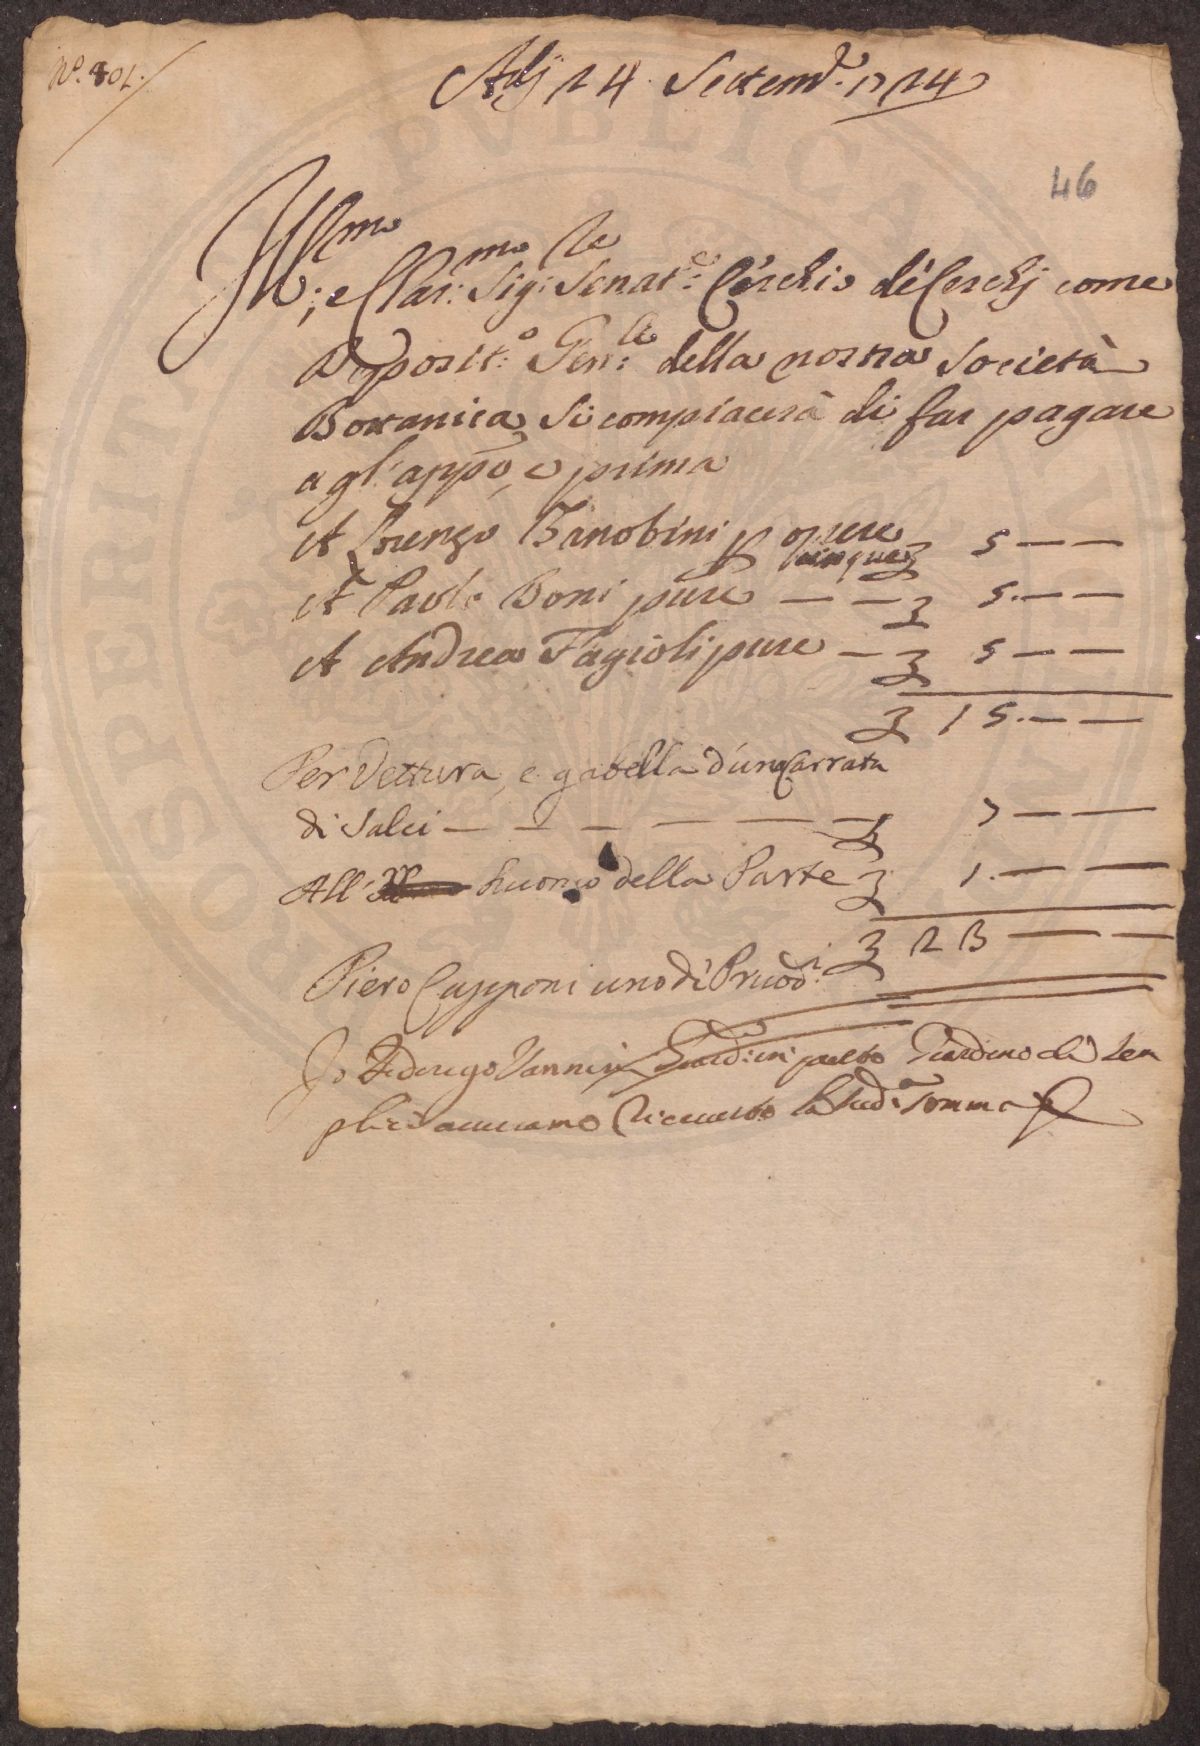 Nº. 801.
Adj 24 Settem.e 1724
46
Ill.mo e Clar.mo Sig.re Senat.e Cerchio de Cerchj come
Deposit.o Gen.le della nostra Società
Botanica si compiacerà di far pagare
a gl'appo, e prima
A Lorenzo Zanobini p opere
cinque 5 — —
A Paolo Boni pure — — 5. — —
A Andrea Fagioli pure — 5 — —
15. — —
Per Vettura, e gabella d'una Carrata
di Salci — — — — — — 7 — —
All' huomo della Parte 1. — —
23 — —
Piero Capponi uno di Prued.i
Io Federigo Vannini Giardini nel do Giardino di Sem
plici abbiamo Riceuuto la Sud.a Somma